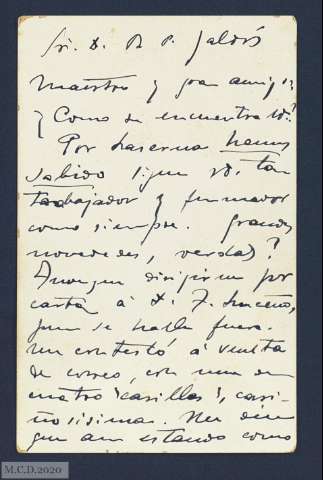 Sr. D. B. P. Galdós
Maestro y gran amigo:
¿Como se encuentra Vd.?
Por Laserna hemos
sabido sigue Vd. tan
trabajador y fumador
como siempre. Grandes
novedades, verdad?
Aunque dirigí un por
carta á D. F.
pues se halla fuera.
Me contestó á vuelta
de correo, con una de
cuatro "carillas", cari-
ñosisimas. Me dice
que aun estando como
M.C.D.2020